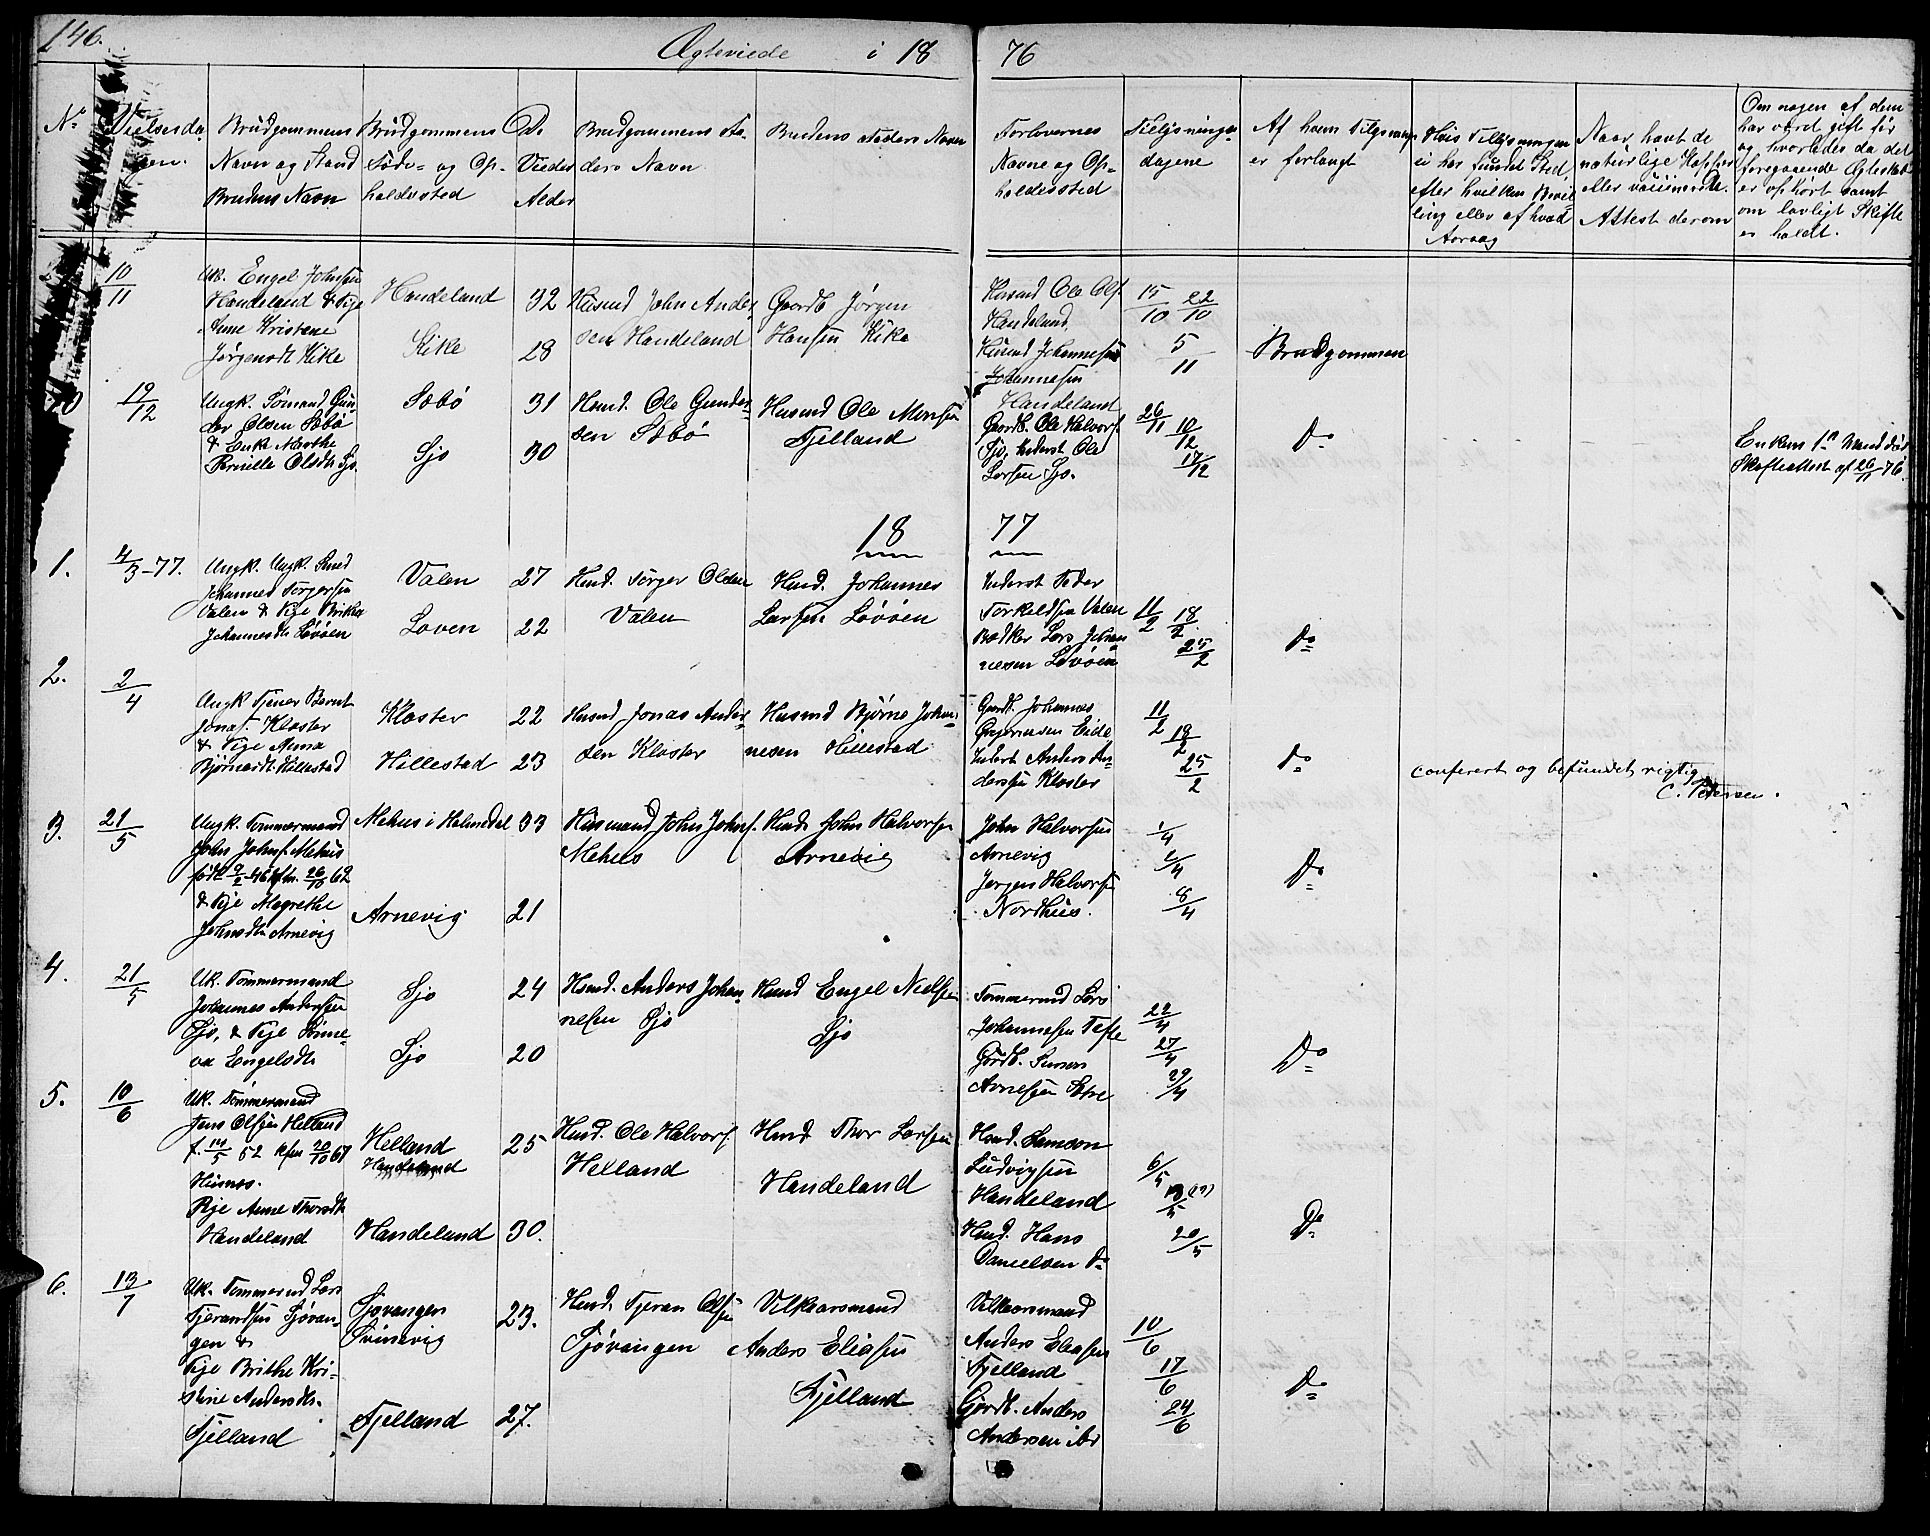 146.
Ægteviede i 18 76
No
Vielsesdagen.
Brudgommens
Navn og Stand
Brudens Navn
Brudgommens
Føde- og Op-
holdssted
De
Viedes
Alder
Brudgommens Fa-
ders Navn
Brudens Faders Navn
Forlovernes
Navne og Op-
holdssted
Tillysnings-
dagene
Af hvem Tillysning
er forlangt
Hvis Tillysningen
ei har fundet Sted
efter hvilken Bevil-
ling eller af hvad
Aarsag
Naar havt de
naturlige Kopper
eller vaccinerede.
Attest derom
Om nogen af dem
har været gift før
og hvorledes da det
foregaaende Ægteskab
er ophørt samt
om lovligt Skifte
er holdt.
10/11
Uk. Engel Johnsen
Handeland & Pige
Anne Kristene
Jørgensdt. Kike
Handeland
Kike
32
28
Husmd John Ander
sen Handeland
Gaardb Jørgen
Hansen Kike
Husmd Ole Ols.
Handeland,
Husmd Johannes
Johannesen
Handeland
15/10 22/10
5/11
Brudgommen
19/12
Ungk. Sømand Gun-
der Olsen Sæbø
& Enke Marthe
Pernille Olsdtr. Sjo.
Sæbø
Sjo
31
30
Hsmd. Ole Gunder-
sen Sæbø
Husmd Ole Monsen
Fjelland
Gaardb. Ole Halvors.
Sjo, Inderst Ole
Larsen Sjo.
26/11 10/12
17/12
Do
Enkens 1ste Mand død
Skifteattest af 26/11 76.
18 77
1.
4/3-77.
Ungk. Ungk. Smed
Johannes Torgersen
Valen & Pige Brithe
Johannesdt. Løvøen
Valen
Loven
27
22
Husd. Torger Olsen
Valen
Husd. Johannes
Larsen Løvøen
Inderst Peder
Torkeldsen Valen
Bødker Lars Johan
nesen Løvøen
11/2 18/2
25/2
Do
2.
2/4
Ungk Tjener Bernt
Jonas. Kloster
& Pige Anna
Bjørnesdt. Hillestad
Kloster
Hillestad
22
23
Husmd Jonas Ander-
sen Kloster
Husmd Bjørne Johan-
nesen Hillestad
Gaardb. Johannes
Eide
Inderst Anders An-
dersen Kloster
11/2
18/2
25/2
Do
conferert og befundet rigtig
C. Petersen.
3.
21/5
Ungk. Tømmermand
John Johns. Mehus
født 9/2 46 kfm. 26/10 62
& Pige Magrethe
Johnsdtr. Arnevig
Mehus i Holmedal
Arnevig
33
21
Husmand John Johns.
Mehus
Husd. John Halvorsen
Arnevig
John Halvorsen
Arnevig
Jørgen Halvorsen
Nordhus.
1/4
2/4
8/4
Do
4.
21/5
Uk. Tømmermand
Johannes Andersen
Sjo, & Pige Sinne-
va Engelsdtr.
Sjo
Sjo
24
20
Hsmd. Anders Johan
nesen Sjo
Husmd Engel Nielsen
Sjo
Tømmermd Lars
Johannesen Tofte
Gordb. Simon
Arnesen Ethne
22/4
27/4
29/4
Do
5.
10/6
Uk. Tømmermand
Jens Olsen Helland
f. 14/5 52 kfm 20/10 67
Husnes.
Pige Anne Thorsdtr
Handeland
Helland
Handeland
Handeland
25
30.
Husd. Ole Halvors.
Helland
Husd Thor Larsen
Handeland
Hsmd. Samson
Ludvigsen
Handeland
Husd. Hans
Danielsen Do
6/5
13/5
20/5
Do
6.
13/7
Uk. Tømmermd Lars
Tjerandsen Sjøvan-
gen &
Pige Brithe Kri-
stine Andersdtr.
Fjelland
Sjøvangen
Svinevig
Fjelland
23.
27.
Husd. Tjeran Olsen
Sjøvangen
Vilkaarsmand
Anders Eliasen
Fjelland
Vilkaarsmand
Anders Eliasen
Fjelland
Gjordb. Anders
Andersen ibd
10/6
17/6
24/6
Do